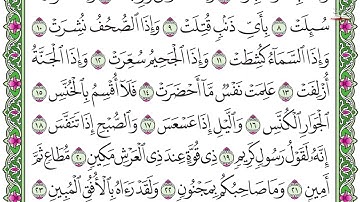 سُئِلَتْ ٨ بِأَيِّ ذَنۢبٍ قُتِلَتْ ٩ وَإِذَا ٱلصُّحُفُ نُشِرَتْ ١٠
وَإِذَا ٱلسَّمَآءُ كُشِطَتْ ١١ وَإِذَا ٱلْجَحِيمُ سُعِّرَتْ ١٢ وَإِذَا ٱلْجَنَّةُ
أُزْلِفَتْ ١٣ عَلِمَتْ نَفْسٌ مَّآ أَحْضَرَتْ ١٤ فَلَآ أُقْسِمُ بِٱلْخُنَّسِ ١٥
ٱلْجَوَارِ ٱلْكُنَّسِ ١٦ وَٱلَّيْلِ إِذَا عَسْعَسَ ١٧ وَٱلصُّبْحِ إِذَا تَنَفَّسَ ١٨
إِنَّهُۥ لَقَوْلُ رَسُولٍ كَرِيمٍ ١٩ ذِى قُوَّةٍ عِندَ ذِى ٱلْعَرْشِ مَكِينٍ ٢٠ مُّطَاعٍ ثَمَّ
أَمِينٍ ٢١ وَمَا صَاحِبُكُم بِمَجْنُونٍ ٢٢ وَلَقَدْ رَءَاهُ بِٱلْأُفُقِ ٱلْمُبِينِ ٢٣